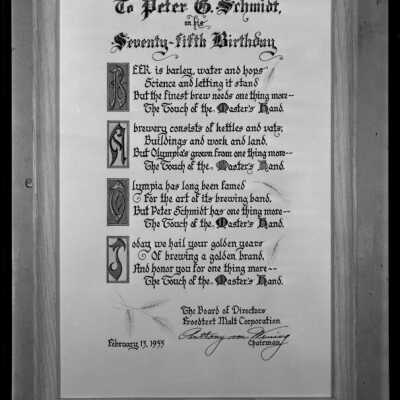 To Peter G. Schmidt,
on his
Seventy-fifth Birthday
BEER is barley, water and hops
Science and letting it stand
But the finest brew needs one thing more--
The Touch of the Master's Hand.
A brewery consists of kettles and vats,
Buildings and work and land,
But Olympia's grown from one thing more--
The Touch of the Master's Hand.
Olympia has long been famed
For the art of its brewing band,
But Peter Schmidt has one thing more--
The Touch of the Master's Hand.
Today we hail your golden years
Of brewing a golden brand,
And honor you for one thing more--
The Touch of the Master's Hand.
The Board of Directors
Froedtert Malt Corporation
Anthony von Wening
Chairman
February 13, 1955